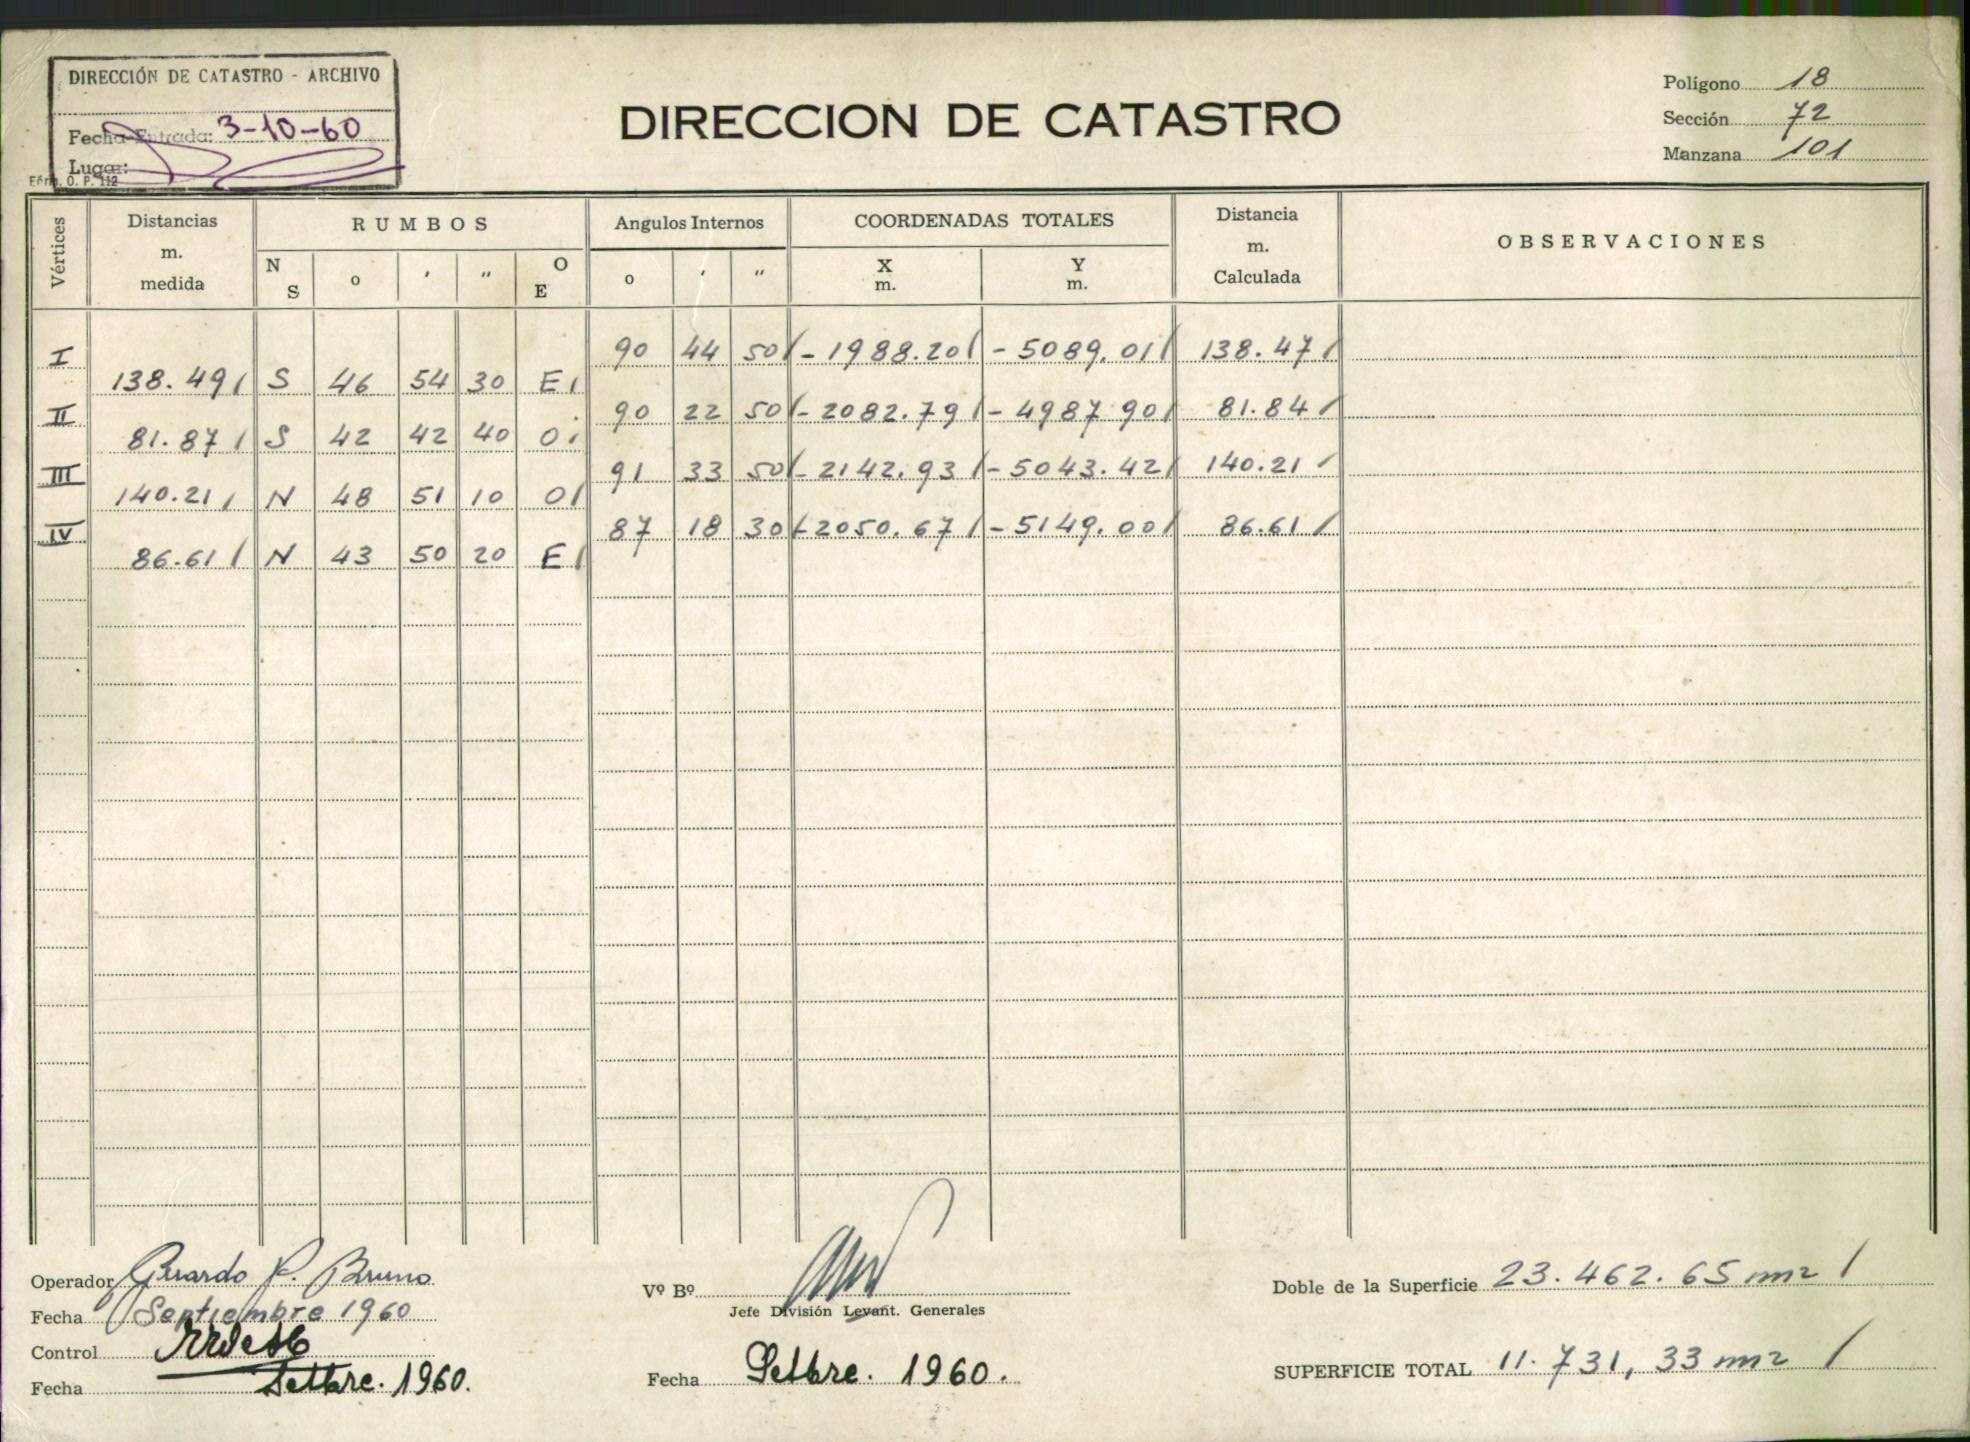 DIRECCIÓN DE CATASTRO - ARCHIVO
Fecha Entrada: 3-10-60
Lugar:
Fórm. O. P. 112
DIRECCION DE CATASTRO
Polígono 18
Sección 72
Manzana 101
Vértices Distancias m. medida RUMBOS Angulos Internos COORDENADAS TOTALES Distancia m. Calculada OBSERVACIONES
N S o ′ ″ O E o ′ ″ X m. Y m.
I 90 44 50 - 1988.20 - 5089.01 138.47
138.49 S 46 54 30 E
II 90 22 50 - 2082.79 - 4987 90 81.84
81.87 S 42 42 40 O
III 91 33 50 - 2142.93 - 5043.42 140.21
140.21 N 48 51 10 O
IV 87 18 30 - 2050.67 - 5149.00 86.61
86.61 N 43 50 20 E
Operador Gerardo P. Bruno
Fecha Septiembre 1960
Control
Fecha Setbre. 1960.
Vº Bº
Jefe División Levant. Generales
Fecha Setbre. 1960.
Doble de la Superficie 23.462.65 m2
SUPERFICIE TOTAL 11.731,33 m2